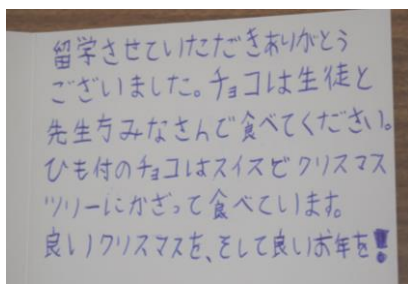 留学させていただきありがとう
ございました。チョコは生徒と
先生方みなさんで食べてください。
ひも付のチョコはスイスでクリスマス
ツリーにかざって食べています。
良いクリスマスを、そして良いお年を!